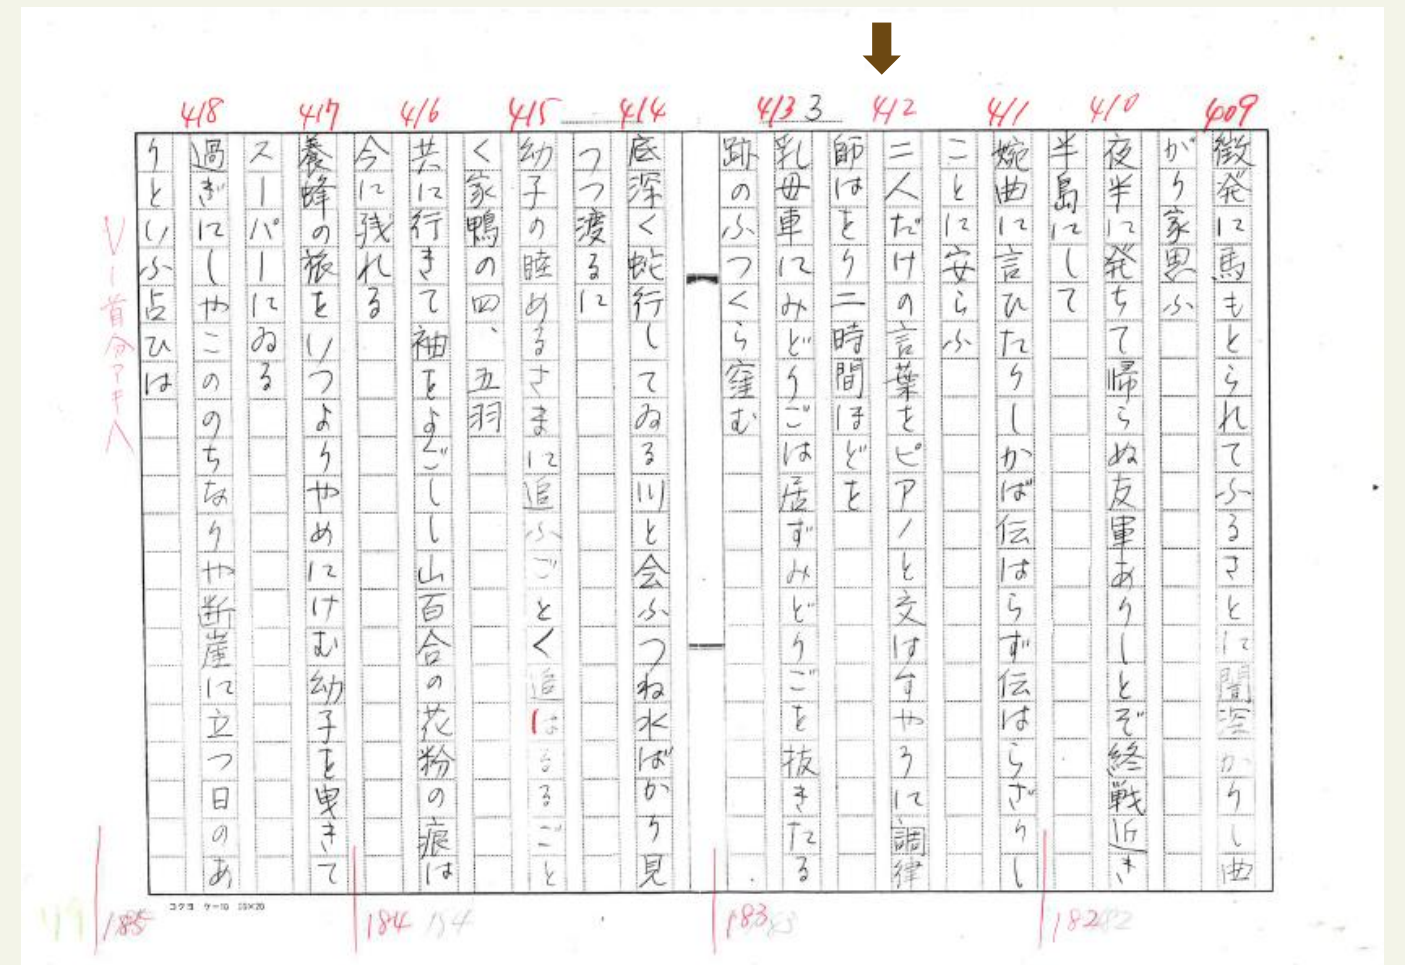 409
徴発に馬もとられてふるさとに闇深かりし曲
がり家思ふ
410
夜半に発ちて帰らぬ友軍ありしとぞ終戦近き
半島にして
411
婉曲に言ひたりしかば伝はらず伝はらざりし
ことに安らふ
412
二人だけの言葉をピアノと交はすやうに調律
師はをり二時間ほどを
413 3
乳母車にみどりごは居ずみどりごを抜きたる
跡のふつくら窪む
414
底深く蛇行してゐる川と会ふつね水ばかり見
つつ渡るに
415
幼子の睦めるさまに追ふごとく追はるるごと
く家鴨の四、五羽
416
共に行きて袖をよごしし山百合の花粉の痕は
今に残れる
417
養蜂の旅をいつよりやめにけむ幼子を曳きて
スーパーにゐる
418
過ぎにしやこののちなりや断崖に立つ日のあ
りといふ占ひは
一首分アキ入
182 182
183 183
184 184
185
コクヨ ケー10 20×20